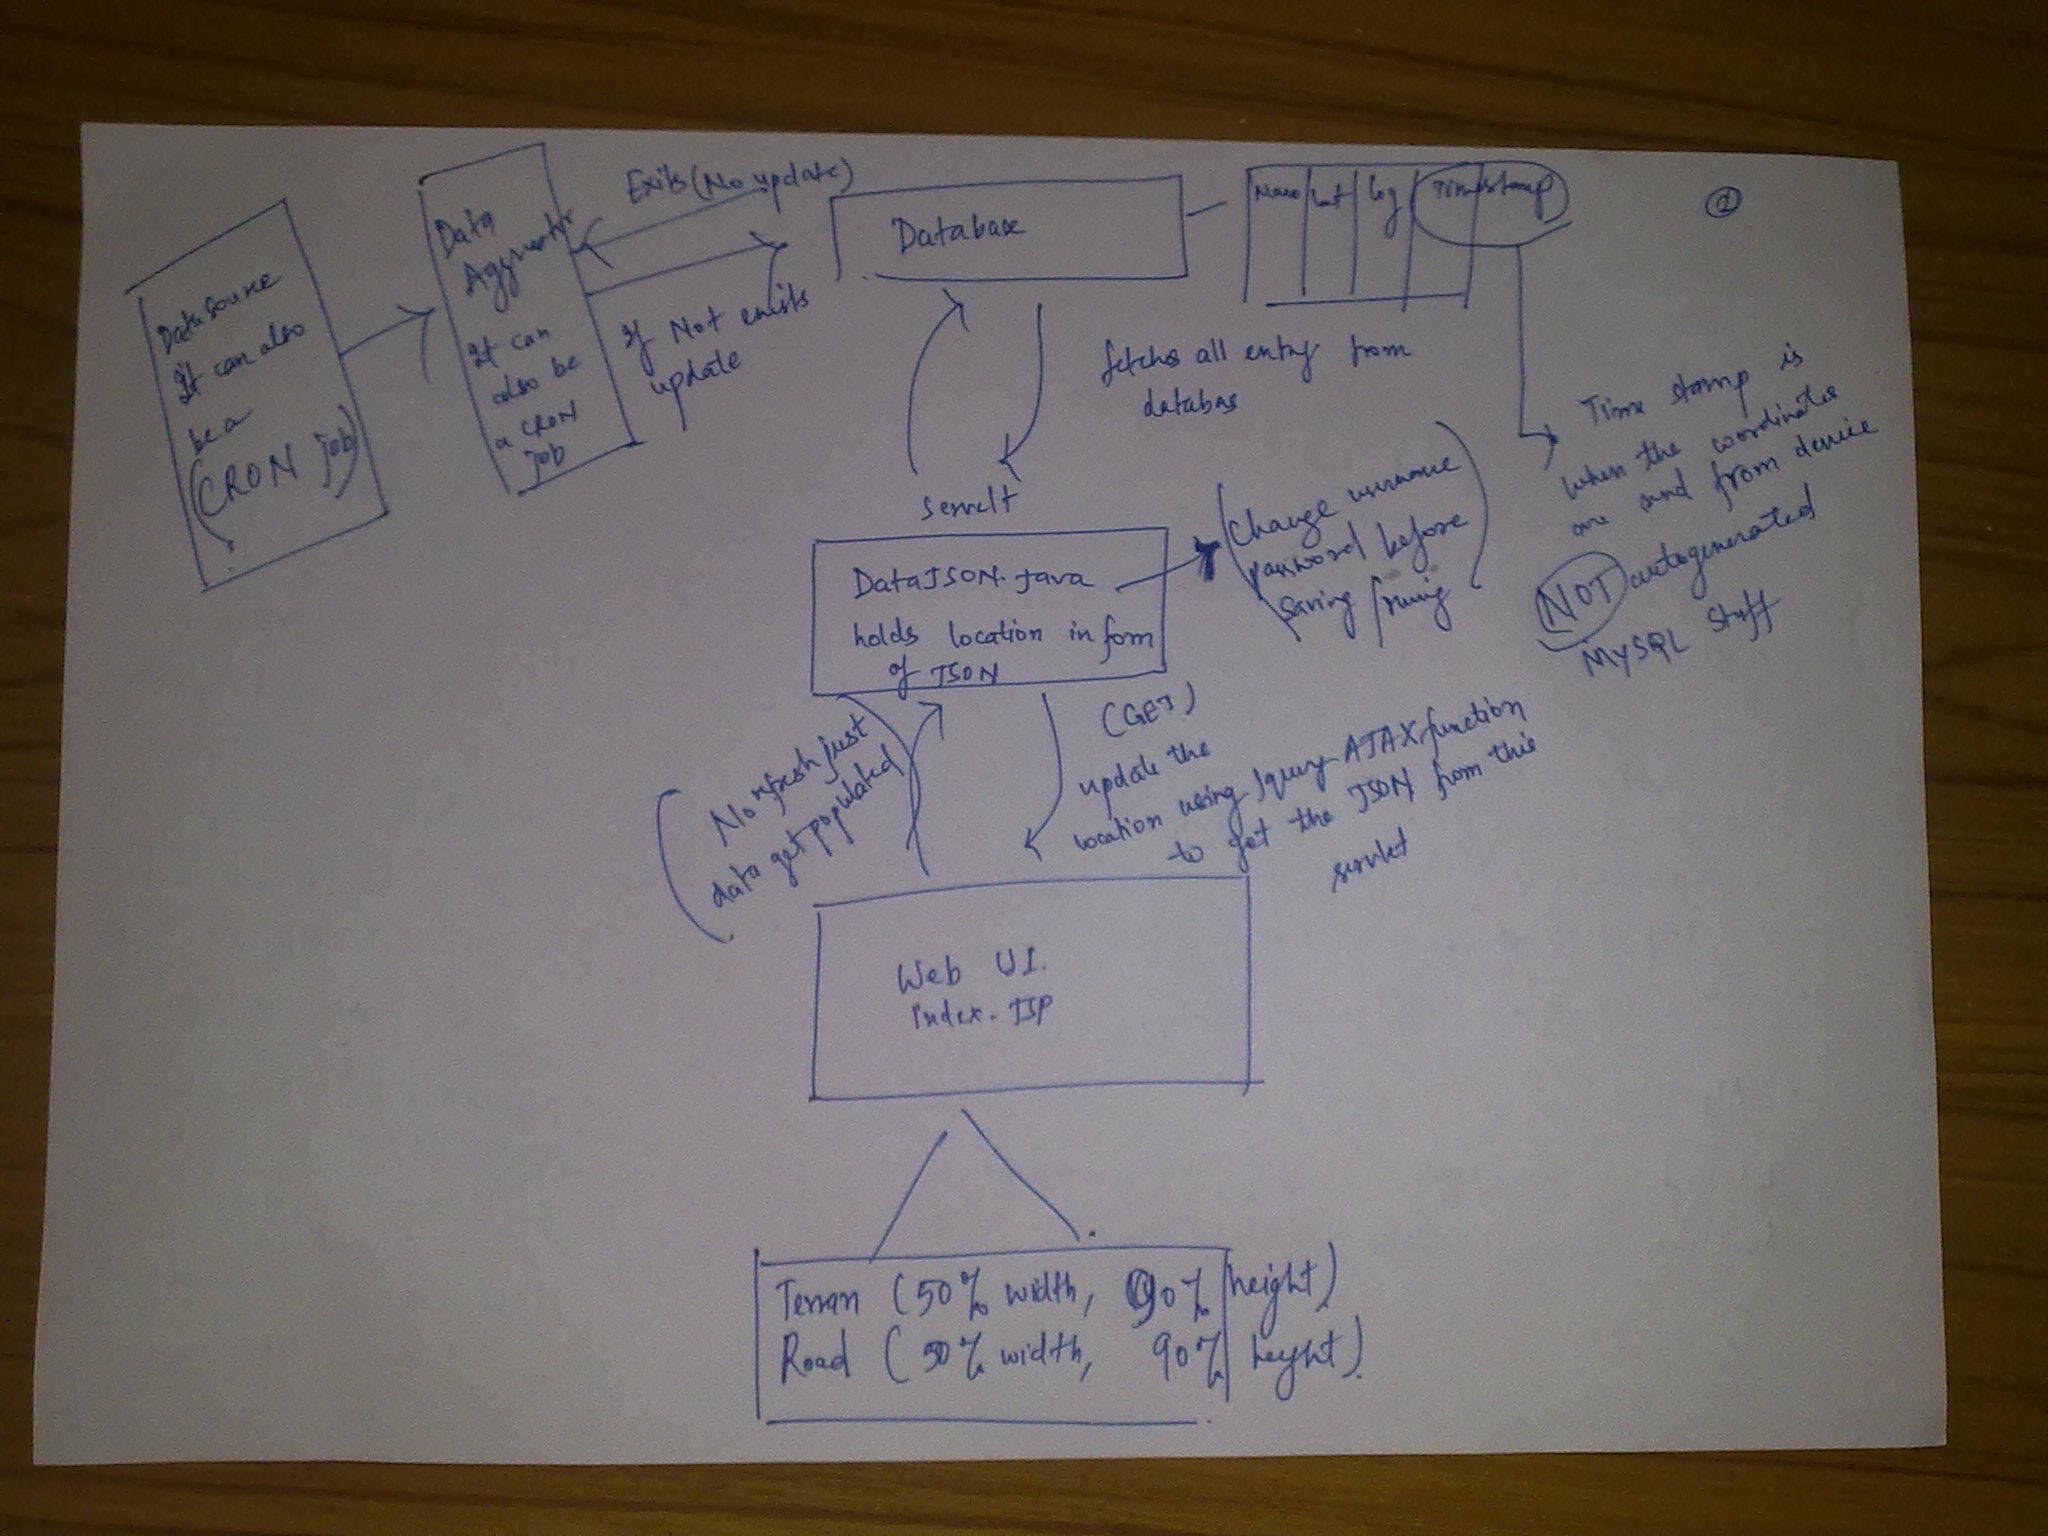 Data Source
It can also
be a
(CRON job)
Data
It can
also be
a CRON
job
Exits (No update)
If Not exists
update
Database
lat
log
Timestamp
1
fetches all entry from
databas
Time stamp is
when the coordinates
are and from device
NOT autogenerated
MYSQL stuff
Servelt
DataJSON.Java
holds location in form
of JSON
(Change username
password before
saving
(No refresh just
data get populated
(GET)
update the
location using Jquery AJAX function
to get the JSON from this
servlet
Web UI.
index.JSP
Terran (50% width, 90% height)
Road (50% width, 90% heyht).